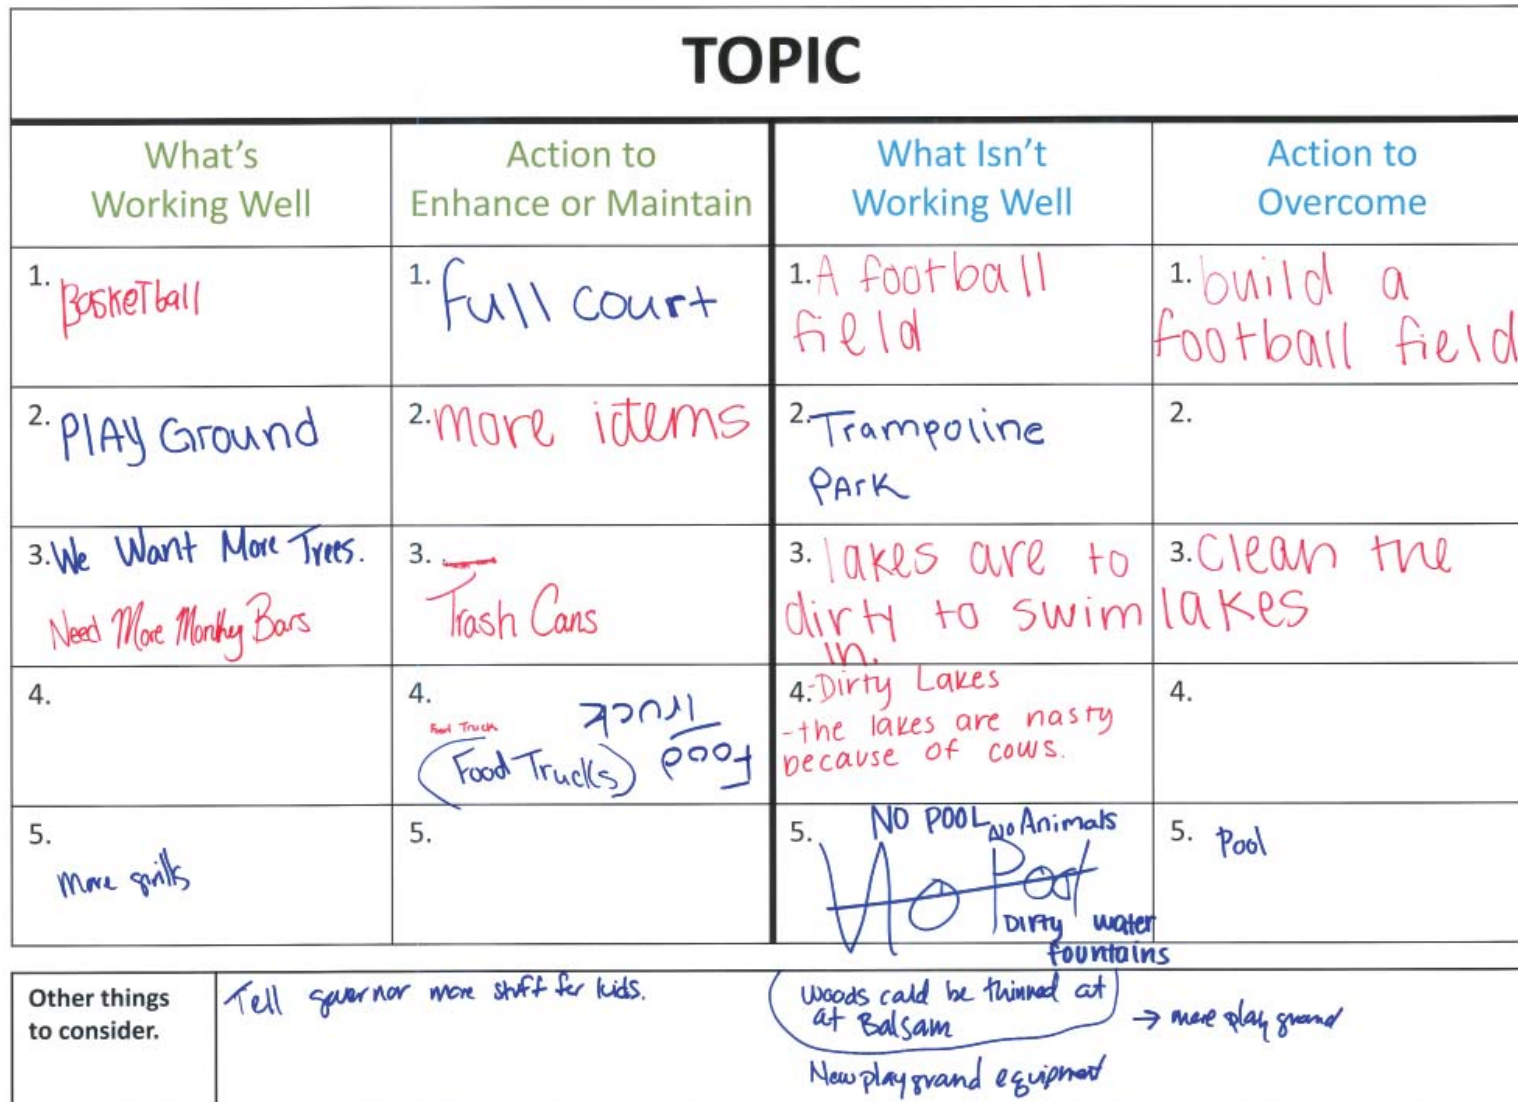 TOPIC
What's
Working Well
Action to
Enhance or Maintain
What Isn't
Working Well
Action to
Overcome
1. BasketBall
1. full court
1. A football
field
1. build a
football field
2. Play Ground
2. more idems
2. Trampoline
Park
2.
3. We Want More Trees.
Need More Monkey Bars
3.
Trash Cans
3. lakes are to
dirty to swim
in.
3. Clean the
lakes
4.
4.
Food Truck
(Food Trucks)
Food
Truck
4. -Dirty Lakes
- the lakes are nasty
because of cows.
4.
5.
more grills
5.
5. NO POOL NO Animals
No Pool
Dirty water
fountains
5. Pool
Other things
to consider.
Tell governor more stuff for kids.
woods could be thinned at
at Balsam
→ more play ground
New playground equipment